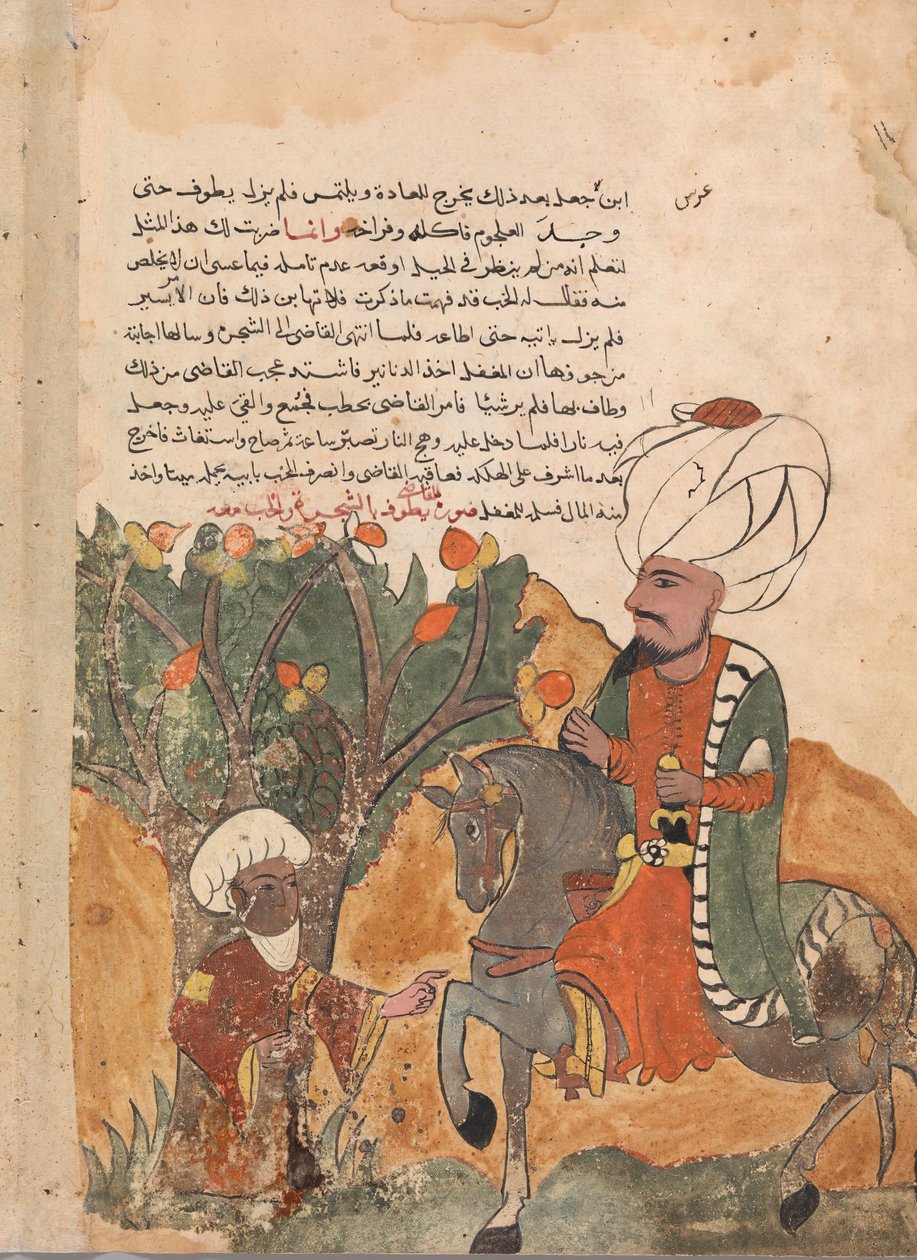 عرس
ابن جعل بعد ذلك يخرج للعادة ويلتمس فلم يزل يطوف حتى
وجد العلجوم فاكله وفراخه وانما ضربت لك هذا المثل
لتعلم انه من لم ينظر في الحيل اوقعه عدم تامله فيما عسى ان لا يخلص
منه فقال له الخب قد فهمت ما ذكرت فلا تهابن ذلك فان الامر يسير
فلم يزل بابيه حتى اطاعه فلما انتهى القاضى الى الشجرة وسالها اجابته
من جوفها ان المغفل اخذ الدنانير فاشتد عجب القاضى من ذلك
وطاف بها فلم ير شيئا فامر القاضى بحطب فجمع والقى عليه وجعل
فيه نارا فلما دخل عليه وهج النار تصبر ساعة ثم صاح واستغاث فاخرج
بعد ما اشرف على الهلكه فعاقبه القاضى وانصرف الخب بابيه يحمله ميتا واخذ
منه المال فسلمه للمغفل صورة القاضى يطوف بالشجرة والخب معه